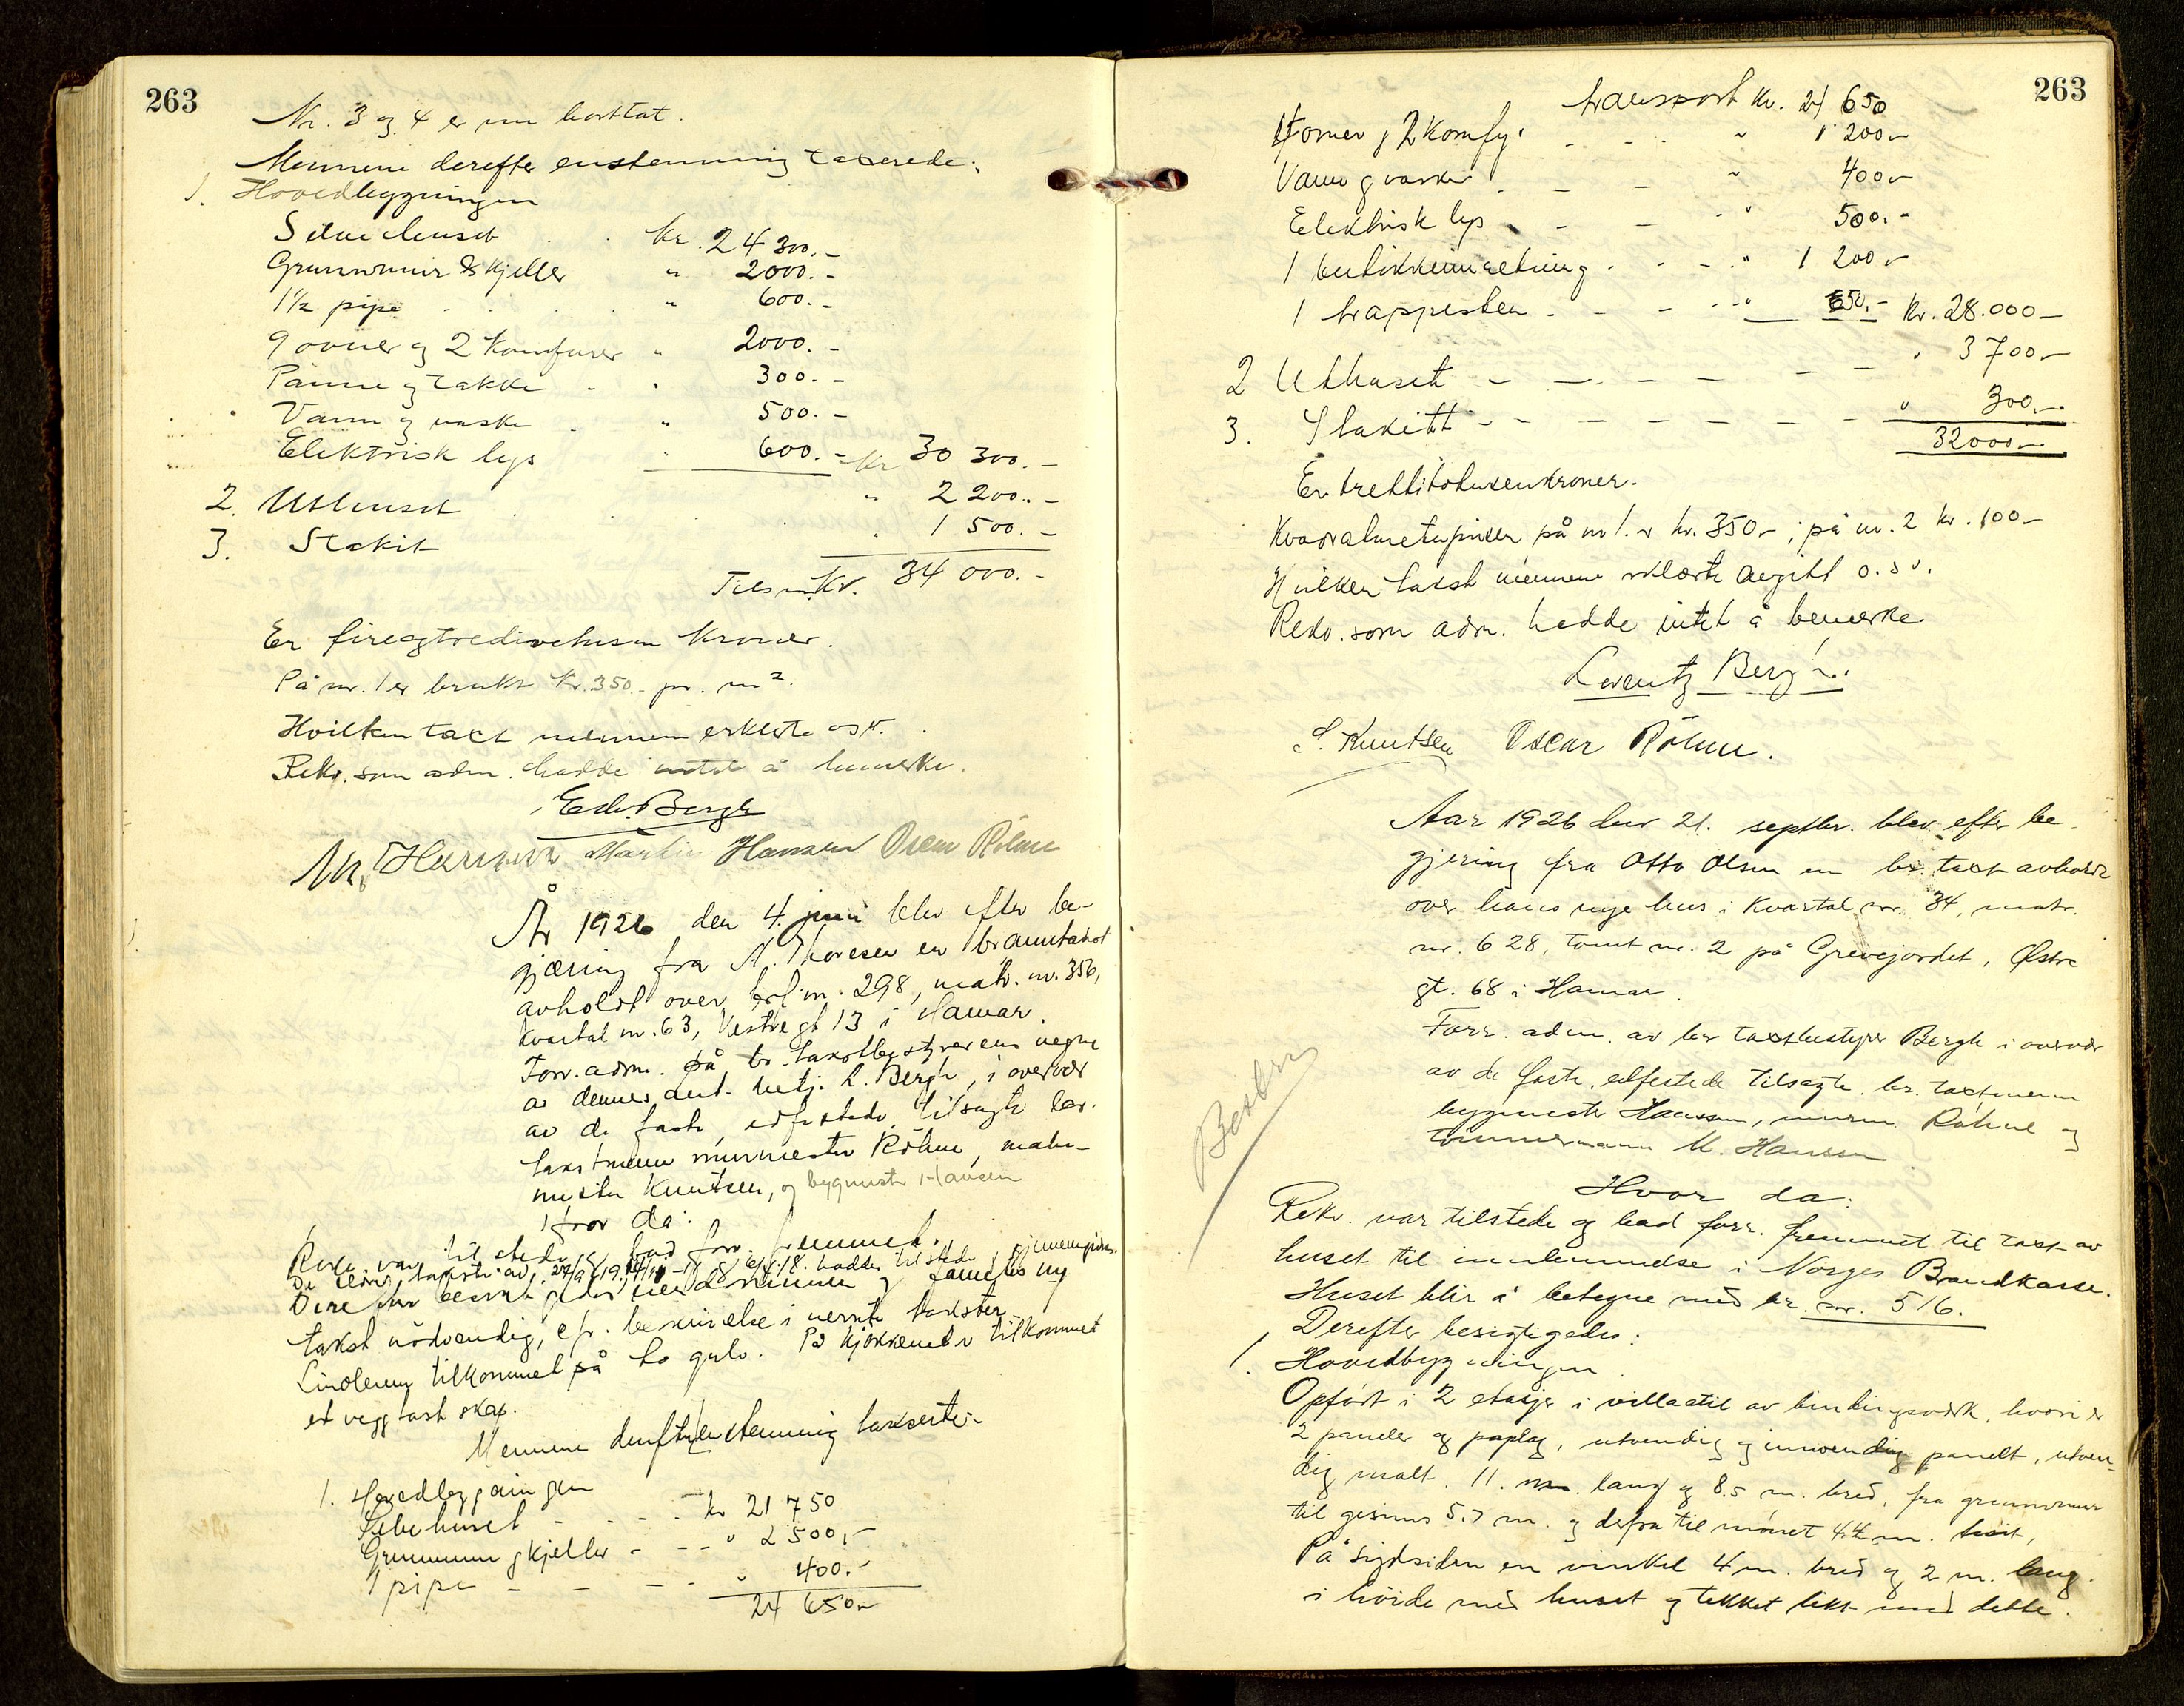 263
Nr. 3 og 4 er nu borttat.
Mennene derefter enstemmig taxerede:
1. Hovedbygningen
Selve huset kr. 24 300.-
Grunnmur & kjeller " 2000.-
1½ pipe " 600.-
9 ovner og 2 komfurer " 2000.-
Panne og takke " 300.-
Vann og vaske " 500.-
Elektrisk lys " 600.- Kr 30 300.-
2. Uthuset " 2 200.-
3. Stakit " 1 500.-
Tilsm. Kr. 34 000.-
Er fireogtredivetusen kroner.
På nr. 1 er brukt Kr. 350.- pr. m².
Hvilken taxt mennene erklærte osv.
Rekv. som adm. hadde intet å bemerke.
Edv. Bergh
M. Hansen Martin Hansen Oscar Röhme
År 1926 den 4. juni blev efter be-
gjæring fra A. Thoresen en branntakst
avholdt over brf. nr. 298, matr. nr. 356,
kvartal nr. 63, Vestregt 13 i Hamar.
Forr. adm. på br. takstbestyrerens vegne
av dennes aut. betj. L. Bergh, i overvær
av de faste, edfestede, tilsagte br.
takstmenn murmester Röhme, maler-
mester Knutsen, og bygmester Hansen
Hvor da:
Rekv. var tilstede og bad forr. fremmet.
De eldre takster av 27/9 19, hadde tilstede gjennemgåes.
Derefter besigtigedes eiendommen og fandtes ny
takst nödvendig, efr. beskrivelse i nevnte takster.
Linoleum tilkommet på to gulv. På kjökkenet er tilkommet
et veggfast skap.
Mennene derefter enstemmig takserte:
1. Hovedbygningen
Selve huset - - - - kr 21 750
Grunnmur og kjeller - - - " 2 500,-
1 pipe - - - - " 400.-
24 650.-
263
transport kr. 24 650
4 ovner og 2 komfy. - - - " 1 200.-
Vann og vasker - - - " 400.-
Elektrisk lys - - - " 500.-
1 butikkinnretning - - - " 1 200.-
1 trappesten - - - " 50.- Kr. 28.000-
2 Uthuset - - - - - - " 3 700-
3. Stakitt - - - - - - - " 300.-
32000-
Er trettitotusenkroner.
Kvadratmeterprisen på nr 1. er kr. 350-; på nr. 2 kr. 100-
Hvilken takst mennene erklærte avgitt o.s.v.
Rekv. som adm. hadde intet å bemerke
Lorentz Bergh.
S. Knutsen Oscar Röhme.
Aar 1926 den 21. septbr. blev efter be-
gjering fra Otto Olsen en br. taxt avholdt
over hans nye hus i Kvartal nr. 34, matr.
nr. 628, tomt nr. 2 på Grevejordet, Østre
gt. 68 i Hamar.
Forr. adm. av br taxtbestyrer Bergh i overvær
av de faste, edfestede tilsagte br. taxtmenn
bygmester Hanssen, murm. Röhme og
tömmermann M. Hanssen
Hvor da:
Rekv. var tilstede og bad forr. fremmet til taxt av
huset til innlemmelse i Norges Brandkasse.
Huset blir å betegne med br. nr. 516.
Derefter besigtigedes:
1. Hovedbygningen
Opfört i 2 etasjer i villastil av bindingsverk, hvori er
2 paneler og paplag, utvendig og innvendig panelt, utven-
dig malt. 11. m. lang og 8.5 m. bred, fra grunnmur
til gesims 5.7 m. og derfra til mönet 4.4 m. höit,
På sydsiden en vinkel 4 m. bred og 2 m. lang.
i höide med huset og tekket likt med dette.